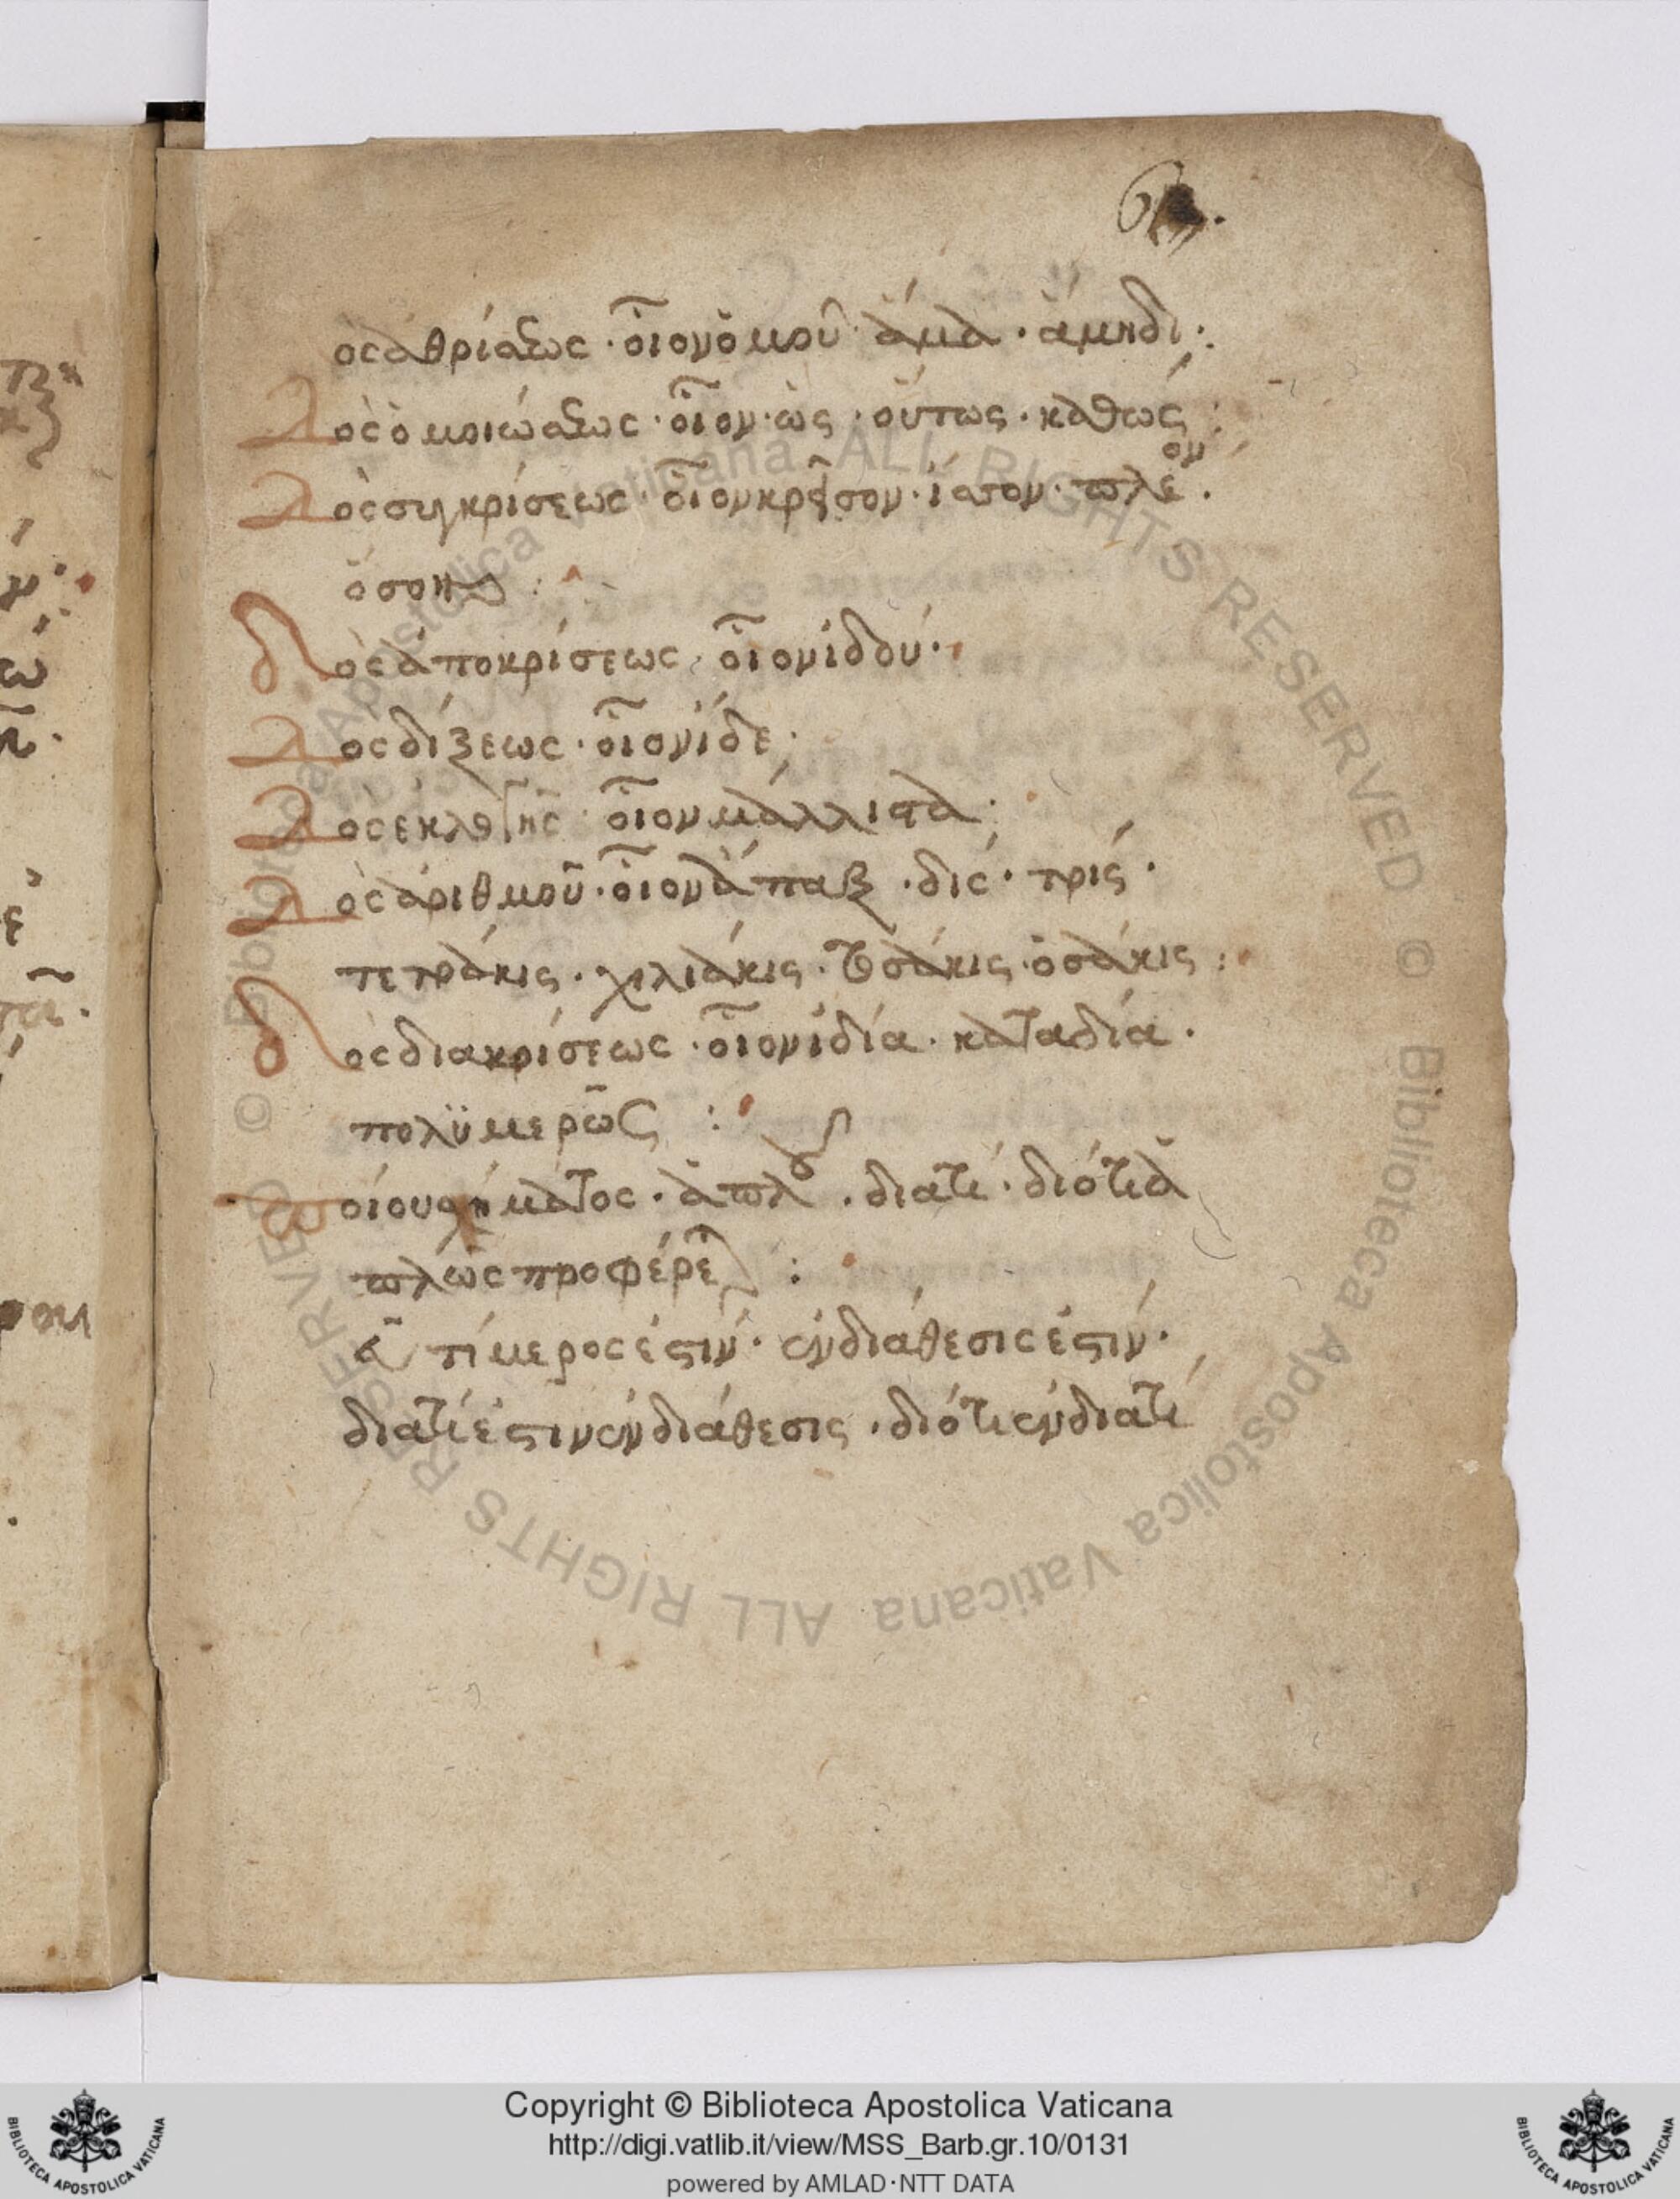 61.
ὁς ἀθρίσεως · οἷον ὁμοῦ · ἅμα · ἅμηδι :
λος ὁμοιώσεως · οἷον · ὡς · οὕτως · καθώς :
λος συγκρίσεως · οἷον κρεῖσον · ἴατον · πλέον .
ὁσον :
δλος ἀποκρίσεως · οἷον ἰδού ·
λος δίξεως · οἷον ἴδε ·
λος ἐκλογῆς · οἷον μάλλιστα ·
λος ἀριθμοῦ · οἷον ἅπαξ · δίς · τρίς ·
τετράκις · χιλιάκις · τοσάκις · ὁσάκις :
δλος διακρίσεως · οἷον ἰδία · καταδία ·
πολϋμερῶς :
ποίου σχήματος · ἁπλοῦ · διατί · διότι ἁ
πλῶς προφέρε :
τί μέρος ἐστίν · ἐνδιάθεσις ἐστίν ·
διατί ἐστιν ἐνδιάθεσις · διότι ἐνδιατί
Copyright © Biblioteca Apostolica Vaticana
http://digi.vatlib.it/view/MSS_Barb.gr.10/0131
powered by AMLAD·NTT DATA